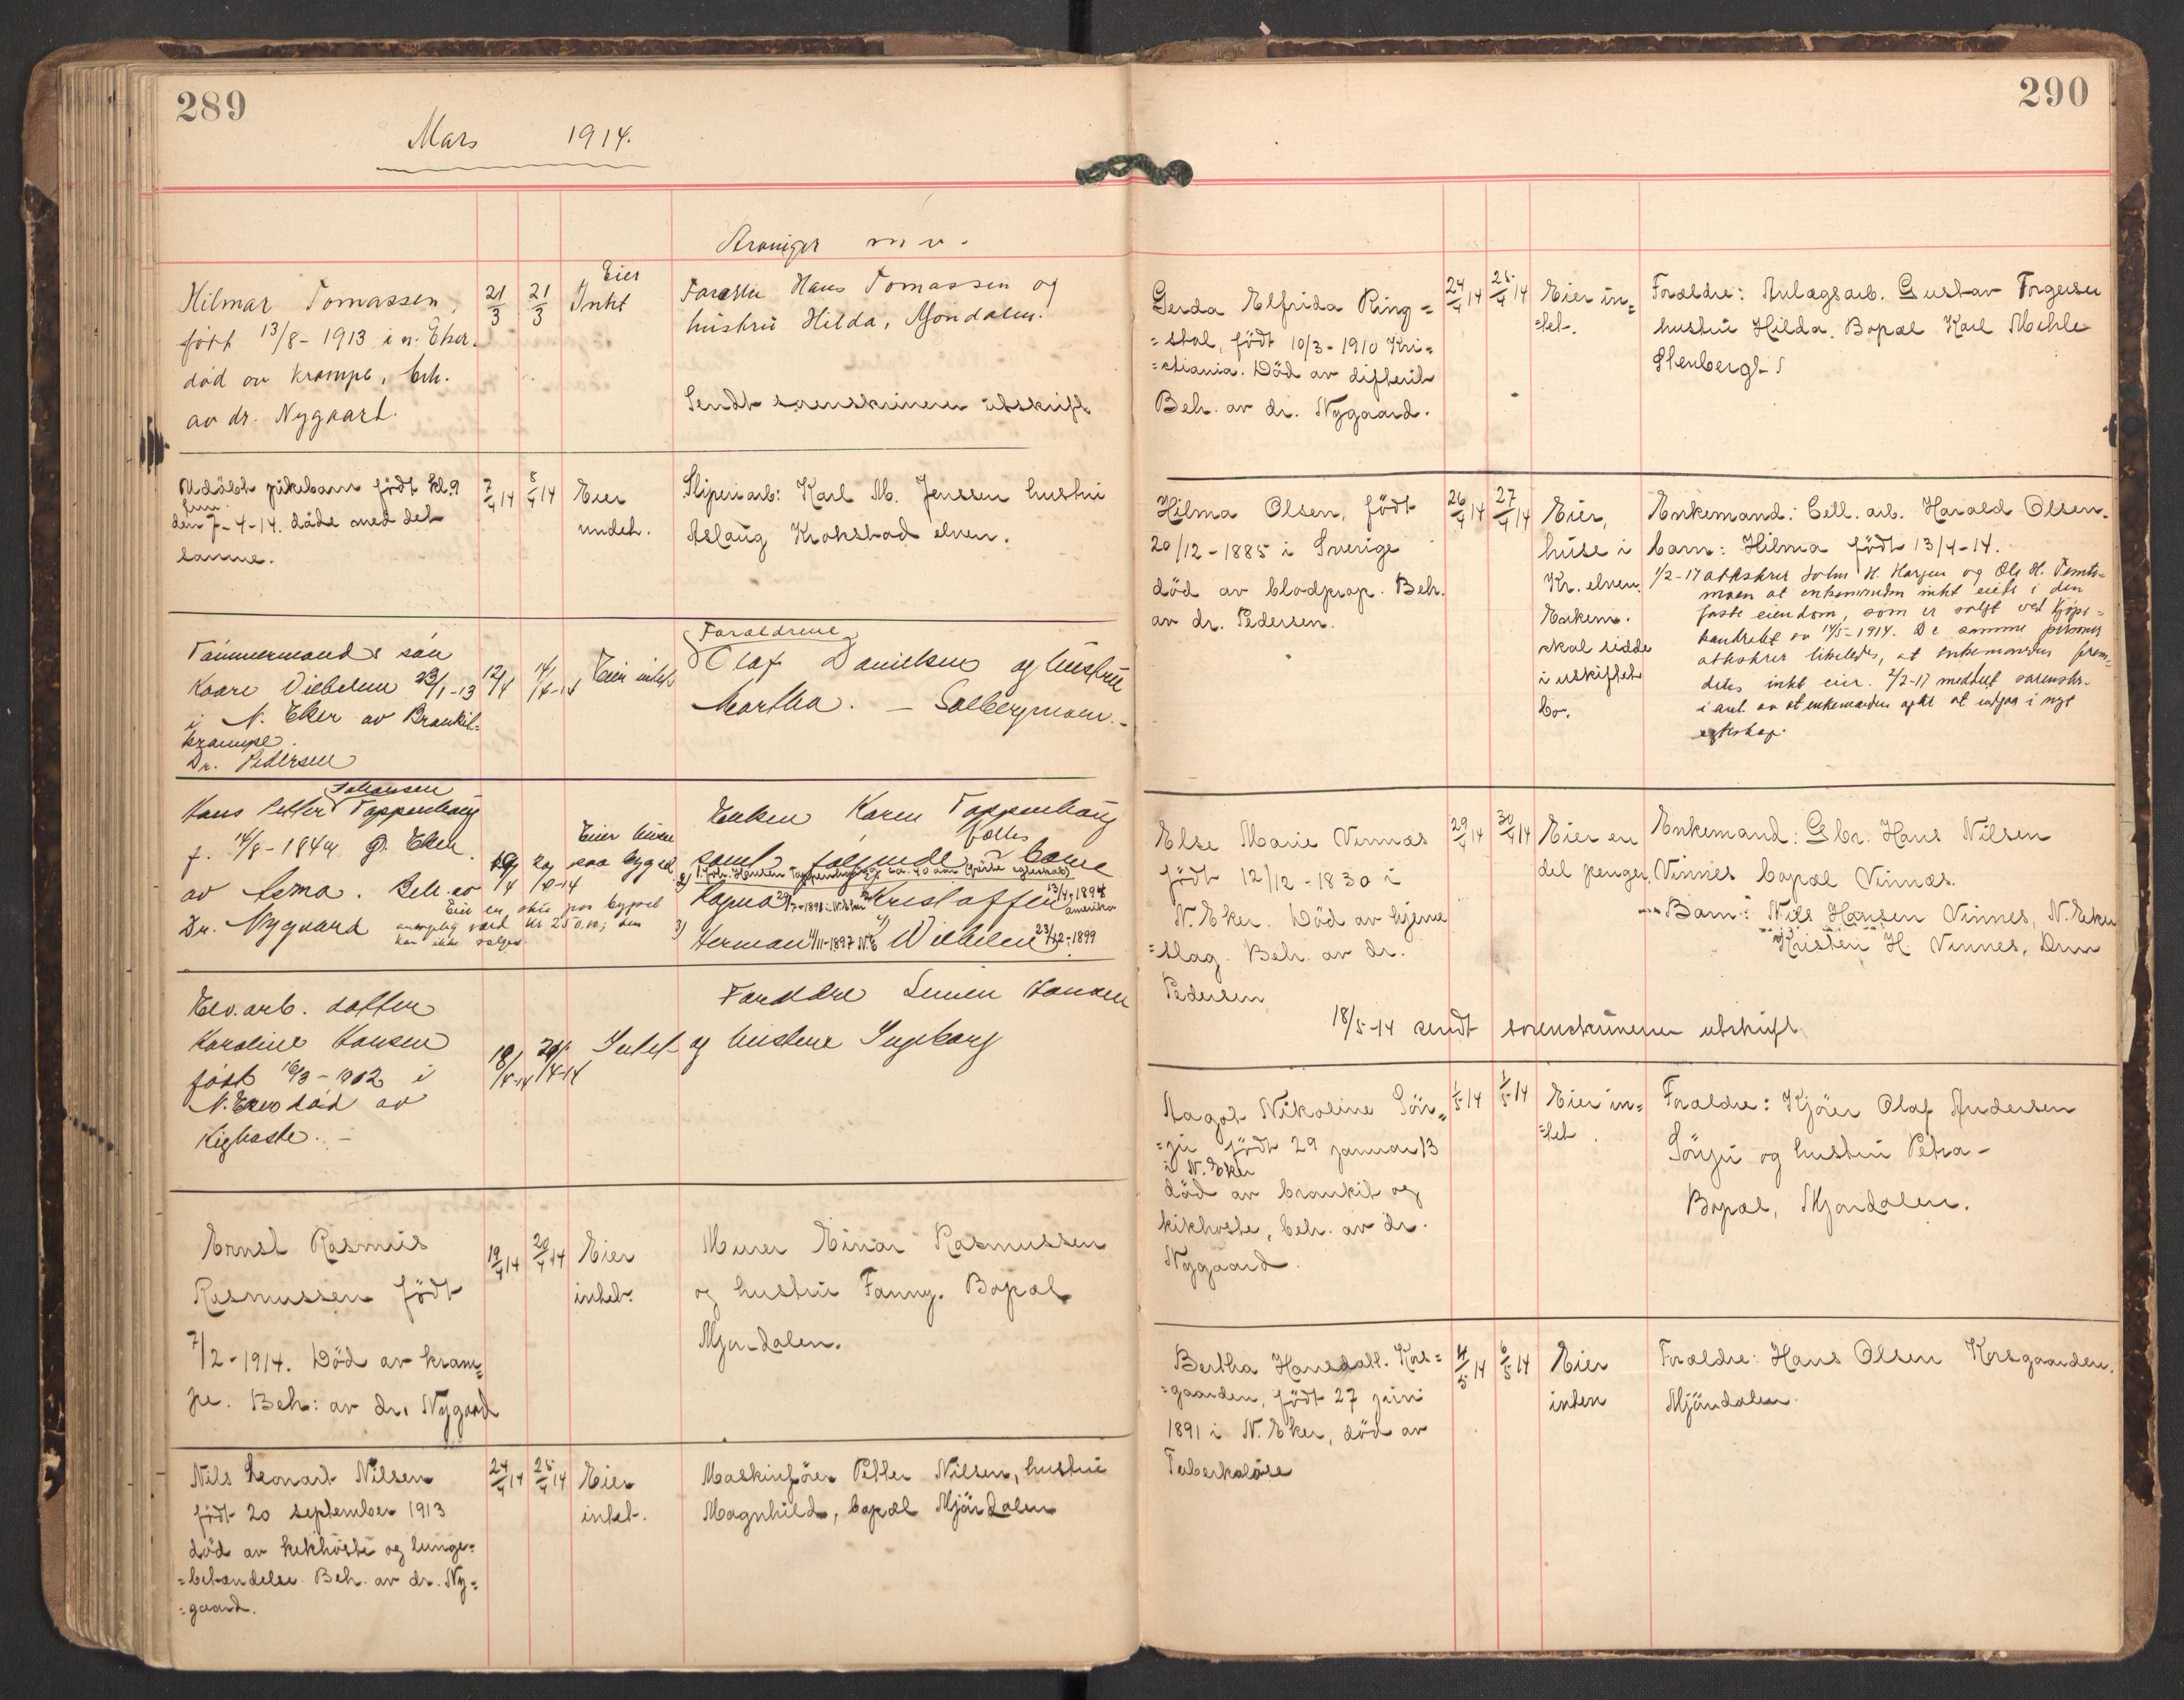 289
Mars 1914.
Arvinger m v.
Hilmar Tomassen,
født 13/8-1913 i n. Eker.
død av krampe, beh.
av dr. Nygaard.
21/3
21/3
Eier
Intet
Forældre Hans Tomassen og
hustru Hilda, Mjøndalen.
Sendt sorenskriveren utskrift.
Udøbt pikebarn født kl. 9
fm.
den 7-4-14. døde med det
samme.
7/4 14
8/4 14
Eier
intet.
Sliperiarb: Karl M. Jenssen hustru
Aslaug Krokstad elven.
Tømmermands søn
Kaare Vilhelm 23/1-13
i N. Eker av Bronkit-
krampe.
Dr. Pedersen
12/4
14/4-14
Eier intet
Forældrene
Olaf Danielsen og hustru
Martha. - Solbergmoen.-
Johansen
Hans Petter Tappenhaug
f. 14/8-1844 Ø. Eker.
av Asma. Beh. av
Dr. Nygaard
19/4
20/4-14
Eier huse
paa bygsel.
Eier en hus paa bygsel
antagelig værd kr 250.00; den
kan ikke sælges.
Enken Karen Tappenhaug
fælles
samt følgende barn
1) Joh. Hansen Tappenhaug ca. 40 aar (første egteskab)
2) Ragna 3) Kristoffer 13/4-1894
Amerika
Herman 11/11-1897 N.E. Vilhelm 23/12-1899
Elv.arb. datter
Karoline Hansen
født 16/3-1902 i
N. Eker død av
Kighoste. -
18/4-14
20/4-14
Intet
Forældre Hansen
og hustru Ingeborg
Ernst Rasmus
Rasmussen født
7/2-1914. Død av kram=
pe. Beh: av dr. Nygaard
19/4 14
20/4 14
Eier
intet.
Murer Einar Rasmussen
og hustru Fanny. Bopæl
Mjøndalen.
Nils Leonart Nilsen
født 20 september 1913
død av kikhoste og lunge=
=betændelse. Beh. av dr. Ny=
=gaard.
24/4 14
25/4 14
Eier
intet.
Maskinfører Petter Nilsen, hustru
Magnhild, bopæl Mjøndalen
290
Gerda Elfrida Ring=
=stal, født 10/3-1910 Kri=
=stiania. Død av difterit
Beh. av dr. Nygaard.
24/4 14
25/4 14
Eier in=
=tet.
Forældre: Anlægsarb. Gustav Torgersen
hustru Hilda. Bopæl Karl Mehle
Stenberg
Hilma Olsen, født
20/12-1885 i Sverige
død av blodprop. Beh.
av dr. Pedersen.
26/4 14
27/4 14
Eier,
huse i
Kr. elven.
Enkem.
skal sidde
i uskiftet
bo.
Enkemand: Cell. arb. Harald Olsen.
barn: Hilma født 13/4-14.
1/2-17 attesterer John H. Horgen og Ole H. Temte-
moen at enkemanden intet eiet i den
faste eiendom, som er solgt ved kjøpe-
kontrakt av 14/5-1914. De samme personer
attesterer likeledes, at enkemanden frem-
deles intet eier. 2/2-17 meddelt sorenskr.
i anl. av at enkemanden agter at indgaa i nyt
egteskap.
Else Marie Vinnæs
født 12/12-1830 i
N. Eker. Død av hjerne
=slag. Beh. av dr.
Pedersen
29/4 14
30/4 14
Eier en
del penger.
Enkemand: Gbr. Hans Nilsen
Vinnes bopæl Vinnæs.
Barn: Nils Hansen Vinnes, N. Eker
Kristen H. Vinnes, Drm
18/5-14 sendt sorenskriveren utskrift
Aagot Nikoline Sør=
=ju født 29 januar 13
i N. Eker
død av bronkit og
kikhoste, beh. av dr.
Nygaard.
1/5 14
1/5 14
Eier in=
=tet.
Forældre: Kjører Olaf Andersen
Sørju og hustru Petra-
Bopæl, Mjøndalen.
Bertha Hansdatt. Kors=
=gaarden, født 27 juni
1891 i N. Eker, død av
Tuberkoløse
4/5 14
6/5 14
Eier
inten
Forældre: Hans Olsen Korsgaarden.
Mjøndalen.